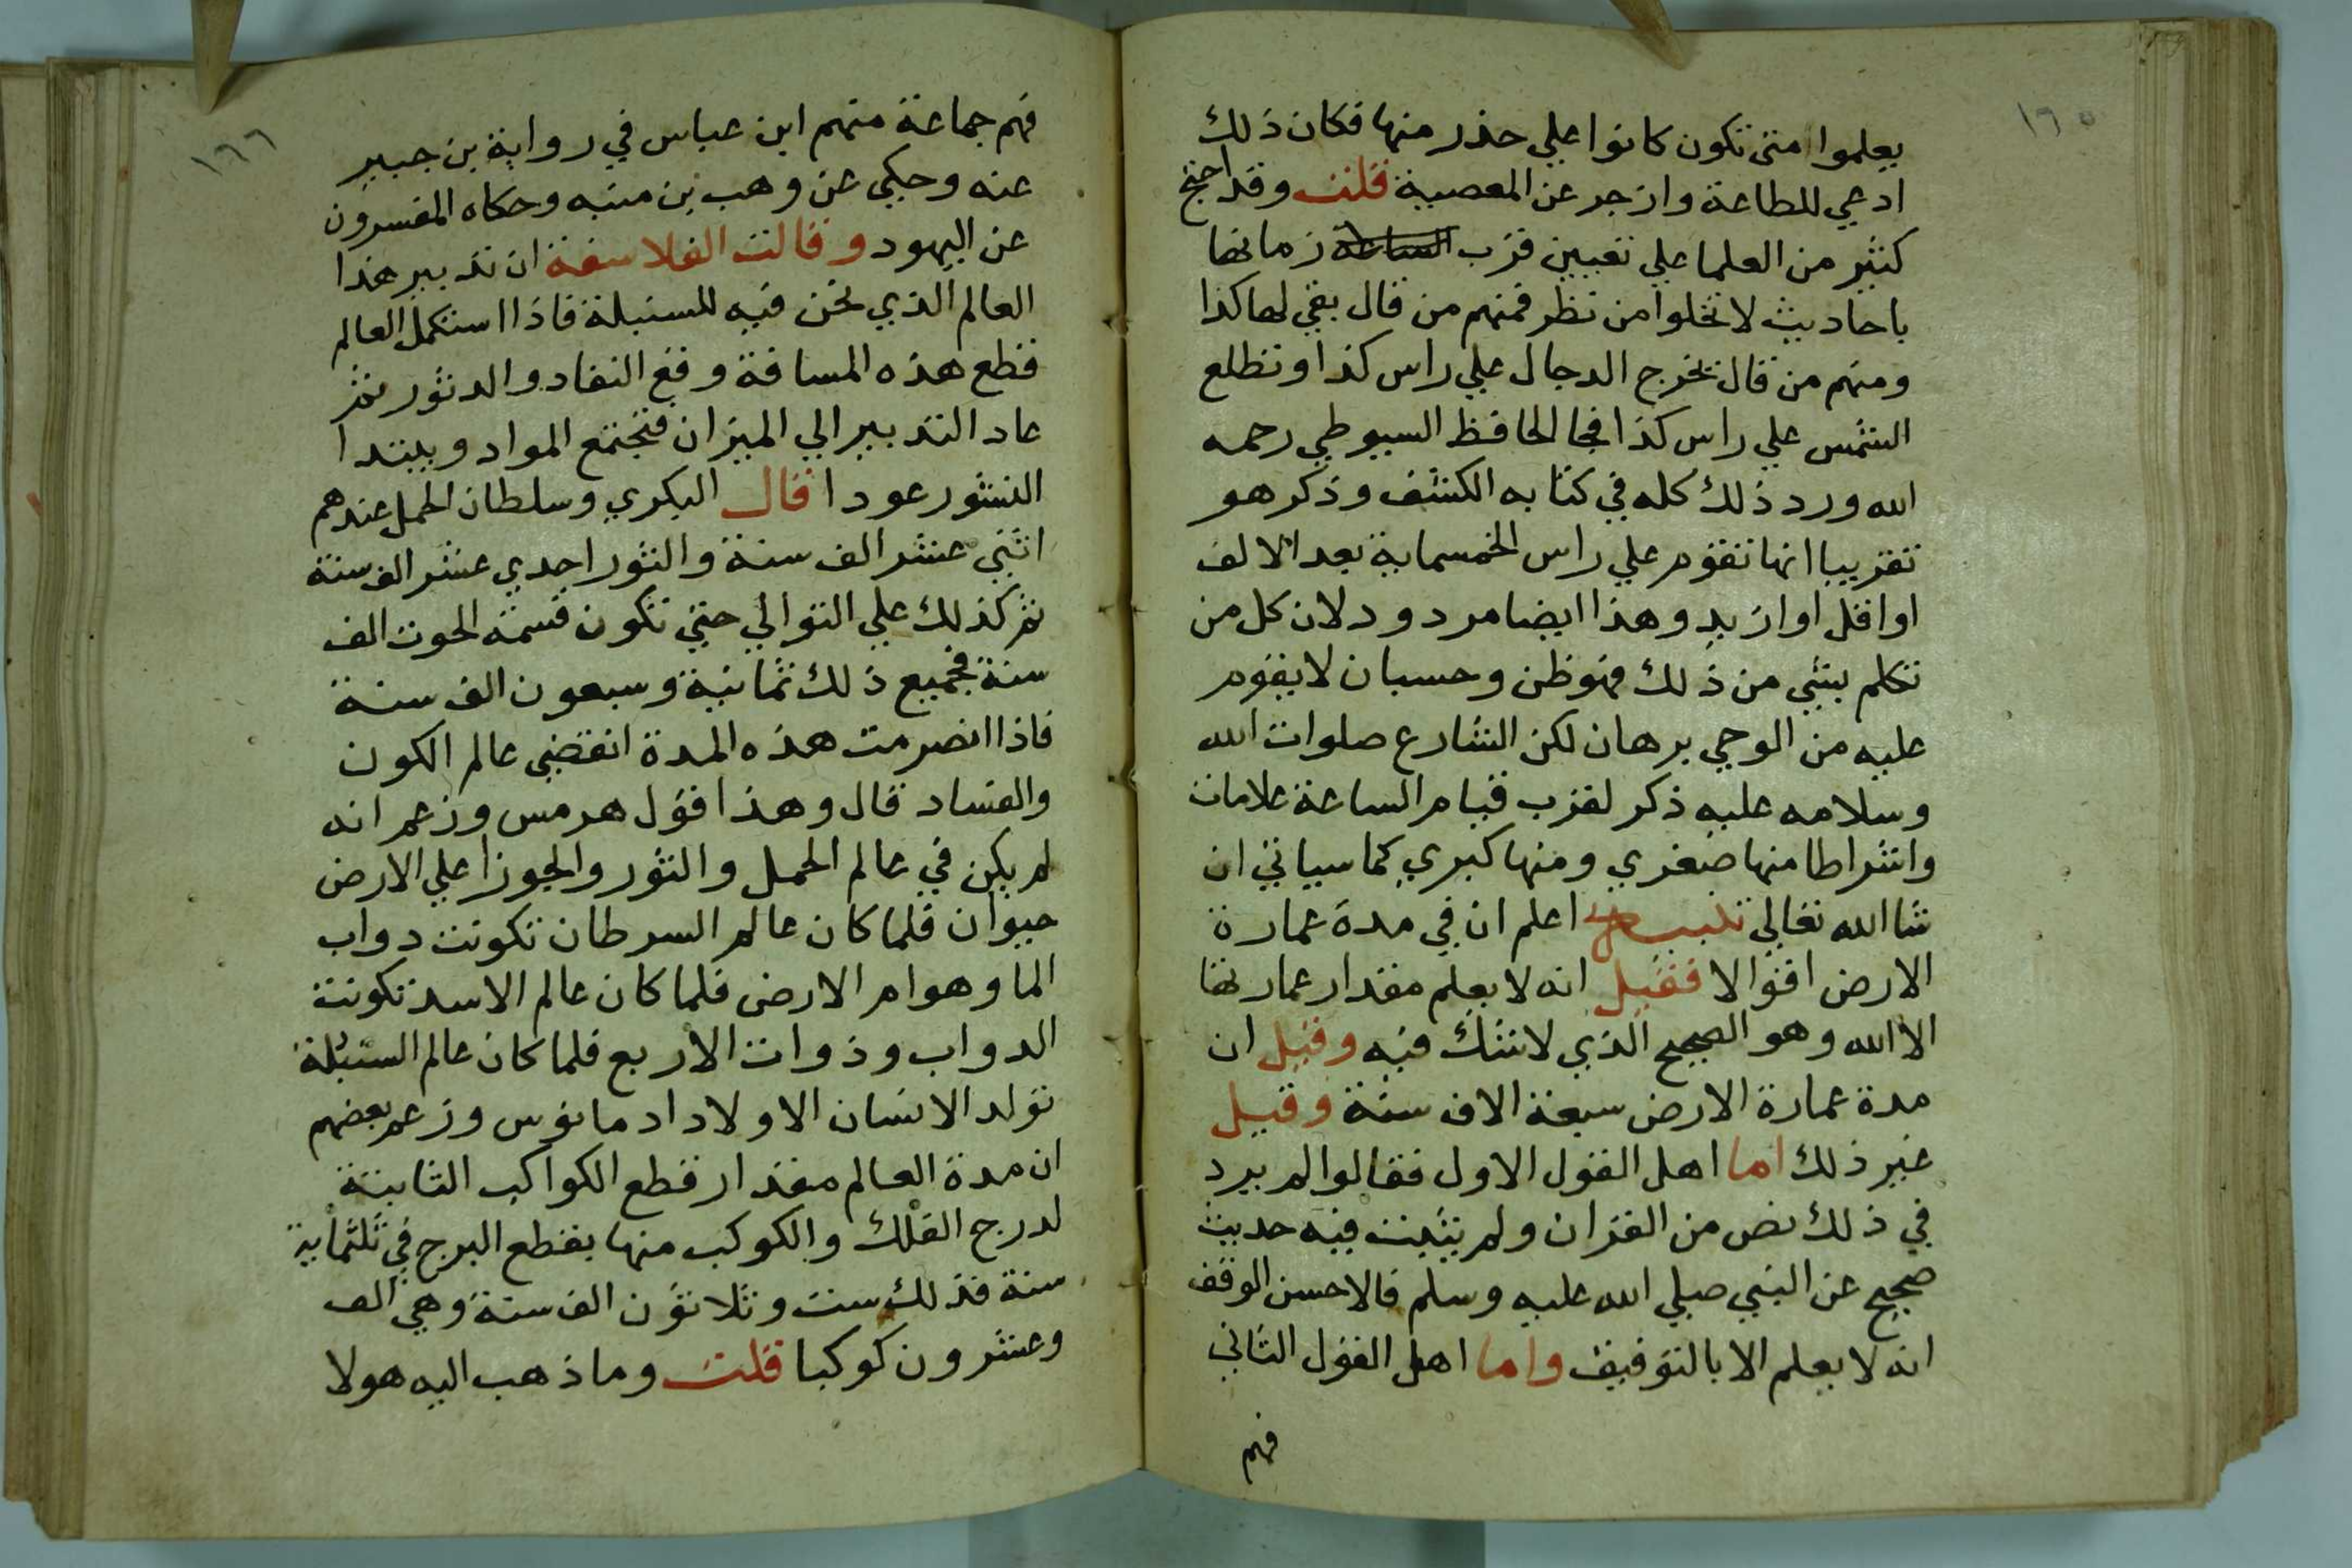 ١٦٥
يعلموا متى تكون كانوا علي حذر منها فكان ذلك
ادعي للطاعة وازجر عن المعصية قلت وقد احتج
كثير من العلما علي تعيين قرب الساعة زمانها
باحاديث لا تخلوا من نظر فمنهم من قال بقي لها كذا
ومنهم من قال يخرج الدجال علي راس كذا وتطلع
الشمس علي راس كذا فجا الحافظ السيوطي رحمه
الله ورد ذلك كله في كتابه الكشف وذكر هو
تقريبا انها تقوم علي راس الخمسماية بعد الالف
او اقل او ازيد وهذا ايضا مردود لان كل من
تكلم بشي من ذلك فهو ظن وحسبان لا يقوم
عليه من الوحي برهان لكن الشارع صلوات الله
وسلامه عليه ذكر لقرب قيام الساعة علامات
واشراطا منها صغري ومنها كبري كما سياتي ان
شا الله تعالي تنبيه اعلم ان في مدة عمارة
الارض اقوالا فقيل انه لا يعلم مقدار عمارتها
الا الله وهو الصحيح الذي لا شك فيه وقيل ان
مدة عمارة الارض سبعة الاف سنة وقيل
غير ذلك اما اهل القول الاول فقالوا لم يرد
في ذلك نص من القران ولم يثبت فيه حديث
صحيح عن النبي صلي الله عليه وسلم فالاحسن الوقف
انه لا يعلم الا بالتوقيف واما اهل القول الثاني
فهم
١٦٦
فهم جماعة منهم ابن عباس في رواية بن جبير
عنه وحكي عن وهب بن منبه وحكاه المفسرون
عن اليهود وقالت الفلاسفة ان تدبير هذا
العالم الذي نحن فيه للسنبلة فاذا استكمل العالم
قطع هذه المسافة وقع النفاد والدثور ثم
عاد التدبير الي الميزان فتجتمع المواد ويبتدا
النشور عودا قال البكري وسلطان الحمل عندهم
اثني عشر الف سنة والثور احدي عشر الف سنة
ثم كذلك علي التوالي حتي تكون قسمة الحوت الف
سنة فجميع ذلك ثمانية وسبعون الف سنة
فاذا انصرمت هذه المدة انقضي عالم الكون
والفساد قال وهذا قول هرمس وزعم انه
لم يكن في عالم الحمل والثور والجوزا علي الارض
حيوان فلما كان عالم السرطان تكونت دواب
الما وهوام الارض فلما كان عالم الاسد تكونت
الدواب وذوات الاربع فلما كان عالم السنبلة
تولد الانسان الاولاد ادمانوس وزعم بعضهم
ان مدة العالم مقدار قطع الكواكب الثابتة
لدرج الفلك والكوكب منها يقطع البرج في ثلثماية
سنة فذلك ست وثلاثون الف سنة وهي الف
وعشرون كوكبا قلت وما ذهب اليه هولا